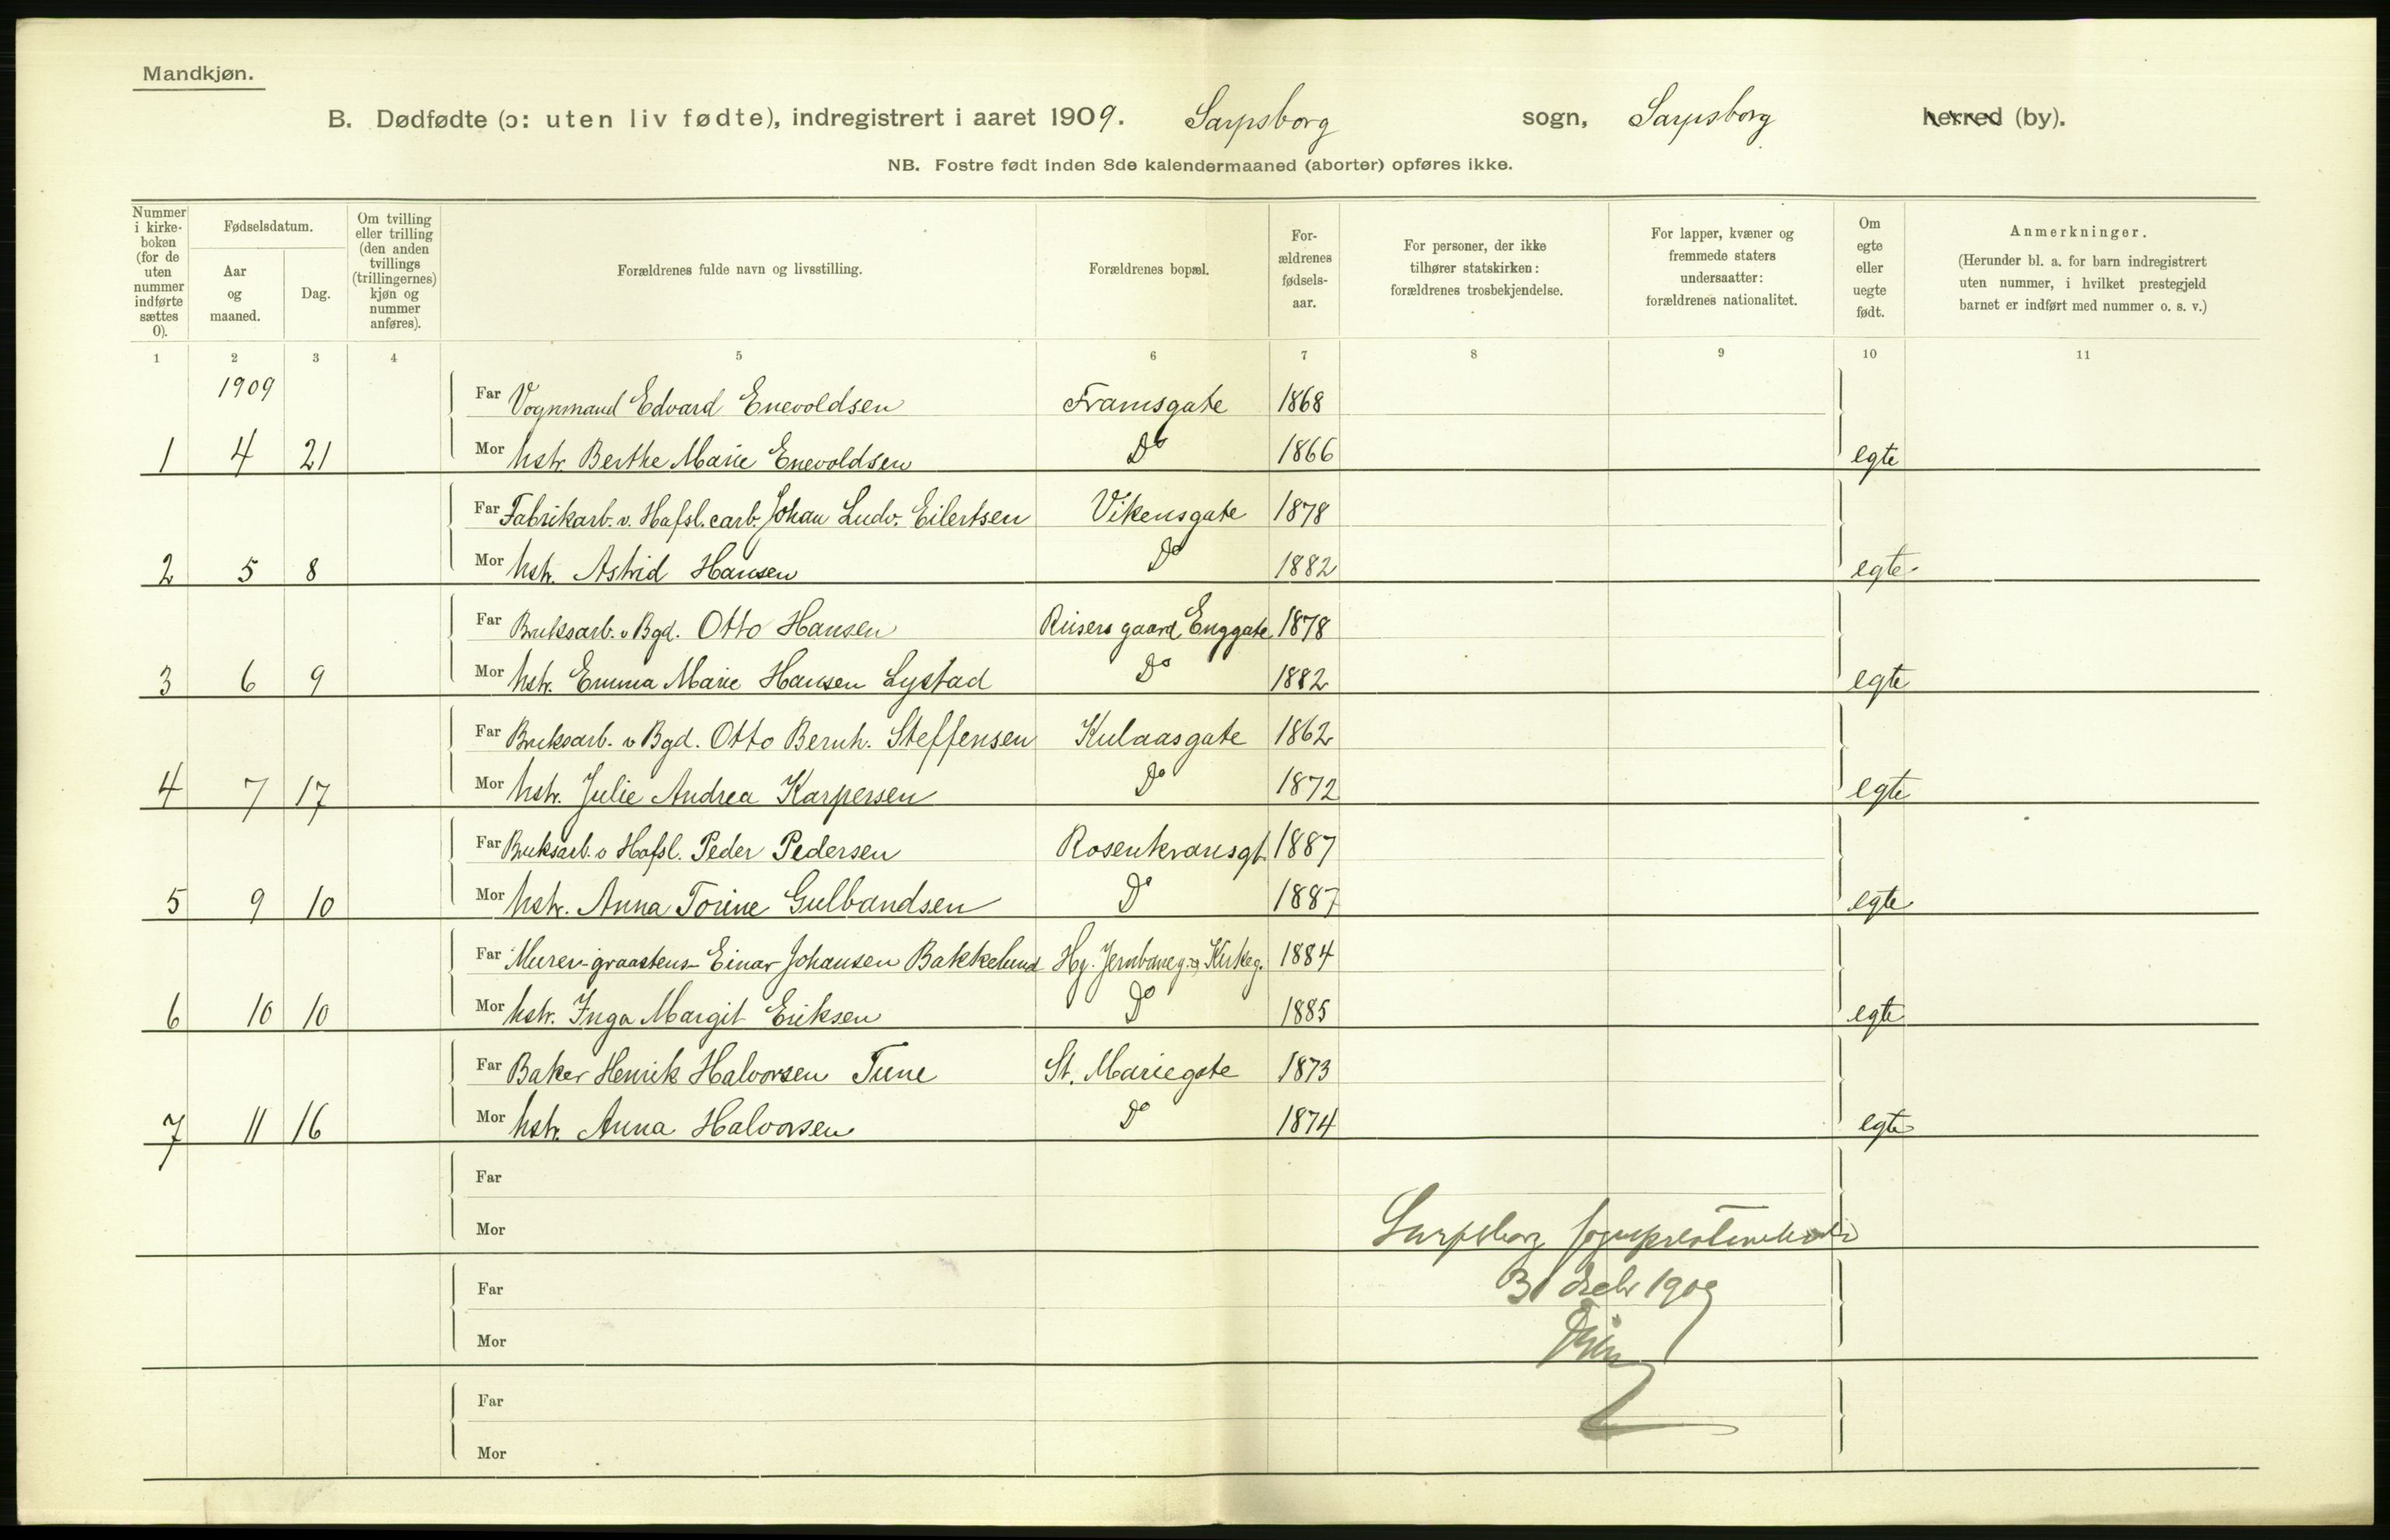 Mandkjøn.
B. Dødfødte (ɔ: uten liv fødte), indregistrert i aaret 1909. Sarpsborg sogn, Sarpsborg herred (by).
NB. Fostre født inden 8de kalendermaaned (aborter) opføres ikke.
Nummer i kirke-boken (for de uten nummer indførte sættes 0).
Fødselsdatum.
Aar og maaned.
Dag.
Om tvilling eller trilling (den anden tvillings (trillingernes) kjøn og nummer anføres).
Forældrenes fulde navn og livsstilling.
Forældrenes bopæl.
For-ældrenes fødsels-aar.
For personer, der ikke tilhører statskirken: forældrenes trosbekjendelse.
For lapper, kvæner og fremmede staters undersaatter: forældrenes nationalitet.
Om egte eller uegte født.
Anmerkninger. (Herunder bl. a. for barn indregistrert uten nummer, i hvilket prestegjeld barnet er indført med nummer o. s. v.)
1 2 3 4 5 6 7 8 9 10 11
1909
Far Vognmand Edvard Enevoldsen Framsgate 1868
1 4 21 Mor hstr. Berthe Marie Enevoldsen Do 1866 egte
Far Fabrikarb. v. Hafsl. carb. Johan Ludv. Eilertsen Vikensgate 1878
2 5 8 Mor hstr. Astrid Hansen Do 1882 egte
Far Bruksarb. v Bgd. Otto Hansen Riisers gaard Enggate 1878
3 6 9 Mor hstr. Emma Marie Hansen Lystad Do 1882 egte
Far Bruksarb. v Bgd. Otto Bernh. Steffensen Kulaasgate 1862
4 7 17 Mor hstr. Julie Andrea Karpersen Do 1872 egte
Far Bruksarb. v Hafsl. Peder Pedersen Rosenkransgt. 1887
5 9 10 Mor hstr. Anna Torine Gulbandsen Do 1887 egte
Far Murer-graastens- Einar Johansen Bakkelund Hj. Jernbaneg. og Kirkeg. 1884
6 10 10 Mor hstr. Inga Margit Eriksen Do 1885 egte
Far Baker Henrik Halvorsen Tune St. Mariegate 1873
7 11 16 Mor hstr. Anna Halvorsen Do 1874 egte
Far
Mor
Sarpsborg sogneprestembede
Far
31 decbr 1909
Mor
Far
Mor